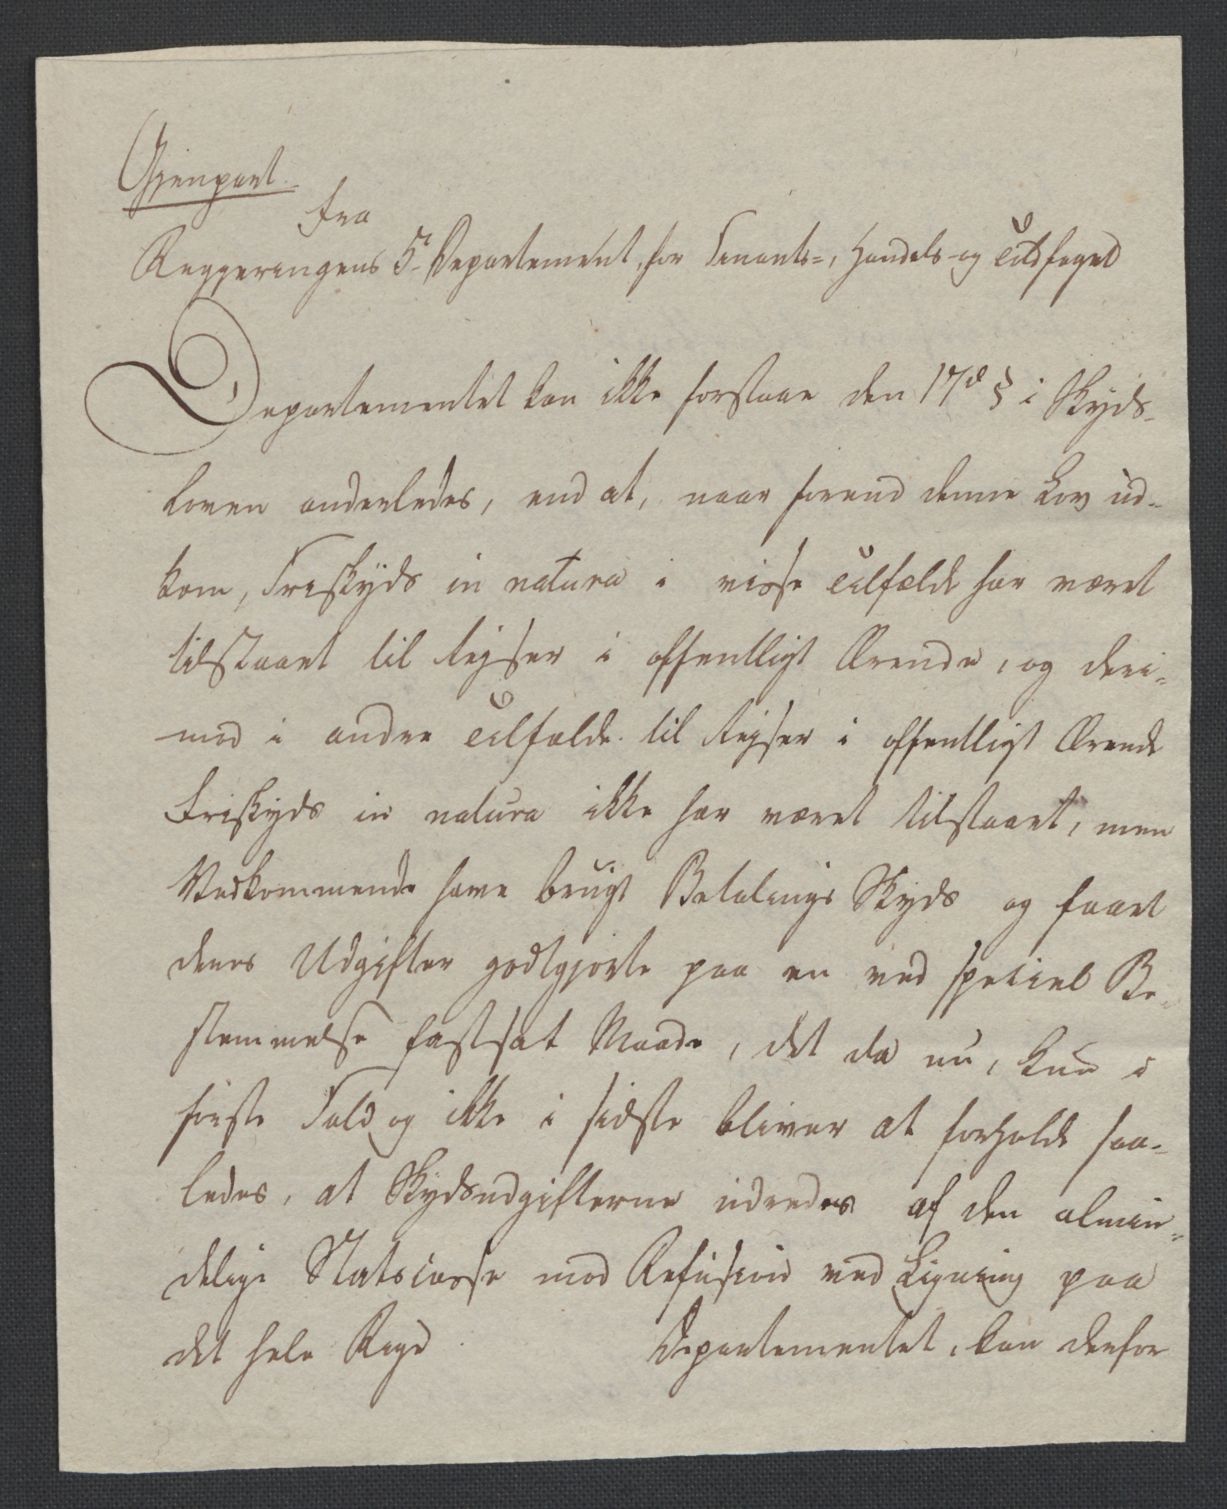 Gjenpart.
Fra
Regjeringens 5. Departement, for Finants-, Handels- og Toldfaget
Departementet kan ikke forstaae den 17d § i Skyds-
loven anderledes, end at, naar forend denne Lov ud-
kom, Friskyds in natura i visse Tilfælde har været
tilstaaet til Rejser i offentligt Ærende, og deri-
mod i andre Tilfælde til Rejser i offentligt Ærende
Friskyds in natura ikke har været tilstaaet, men
Vedkommende have brugt Betalings Skyds og faaet
deres Udgifter godtgjorte paa en ved speciel Be-
stemmelse fastsat Maade, det da nu, kun i
første Fald og ikke i sidste bliver at forholde saa-
ledes, at Skydsudgifterne udredes af den almin-
delige Statscasse mod Refusion ved Ligning paa
det hele Rige. Departementet, kan derfor